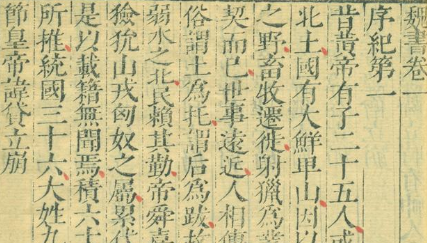 魏書卷一
序紀第一
昔黃帝有子二十五人或
北土國有大鮮卑山因以
之野畜牧遷徙射獵爲業
契而已世事遠近人相傳
俗謂土爲托謂后爲跋故
弱水之北民賴其勤帝舜嘉
獫狁山戎匈奴之屬累代
是以載籍無聞焉積六十
所推統國三十六大姓九
節皇帝諱貸立崩